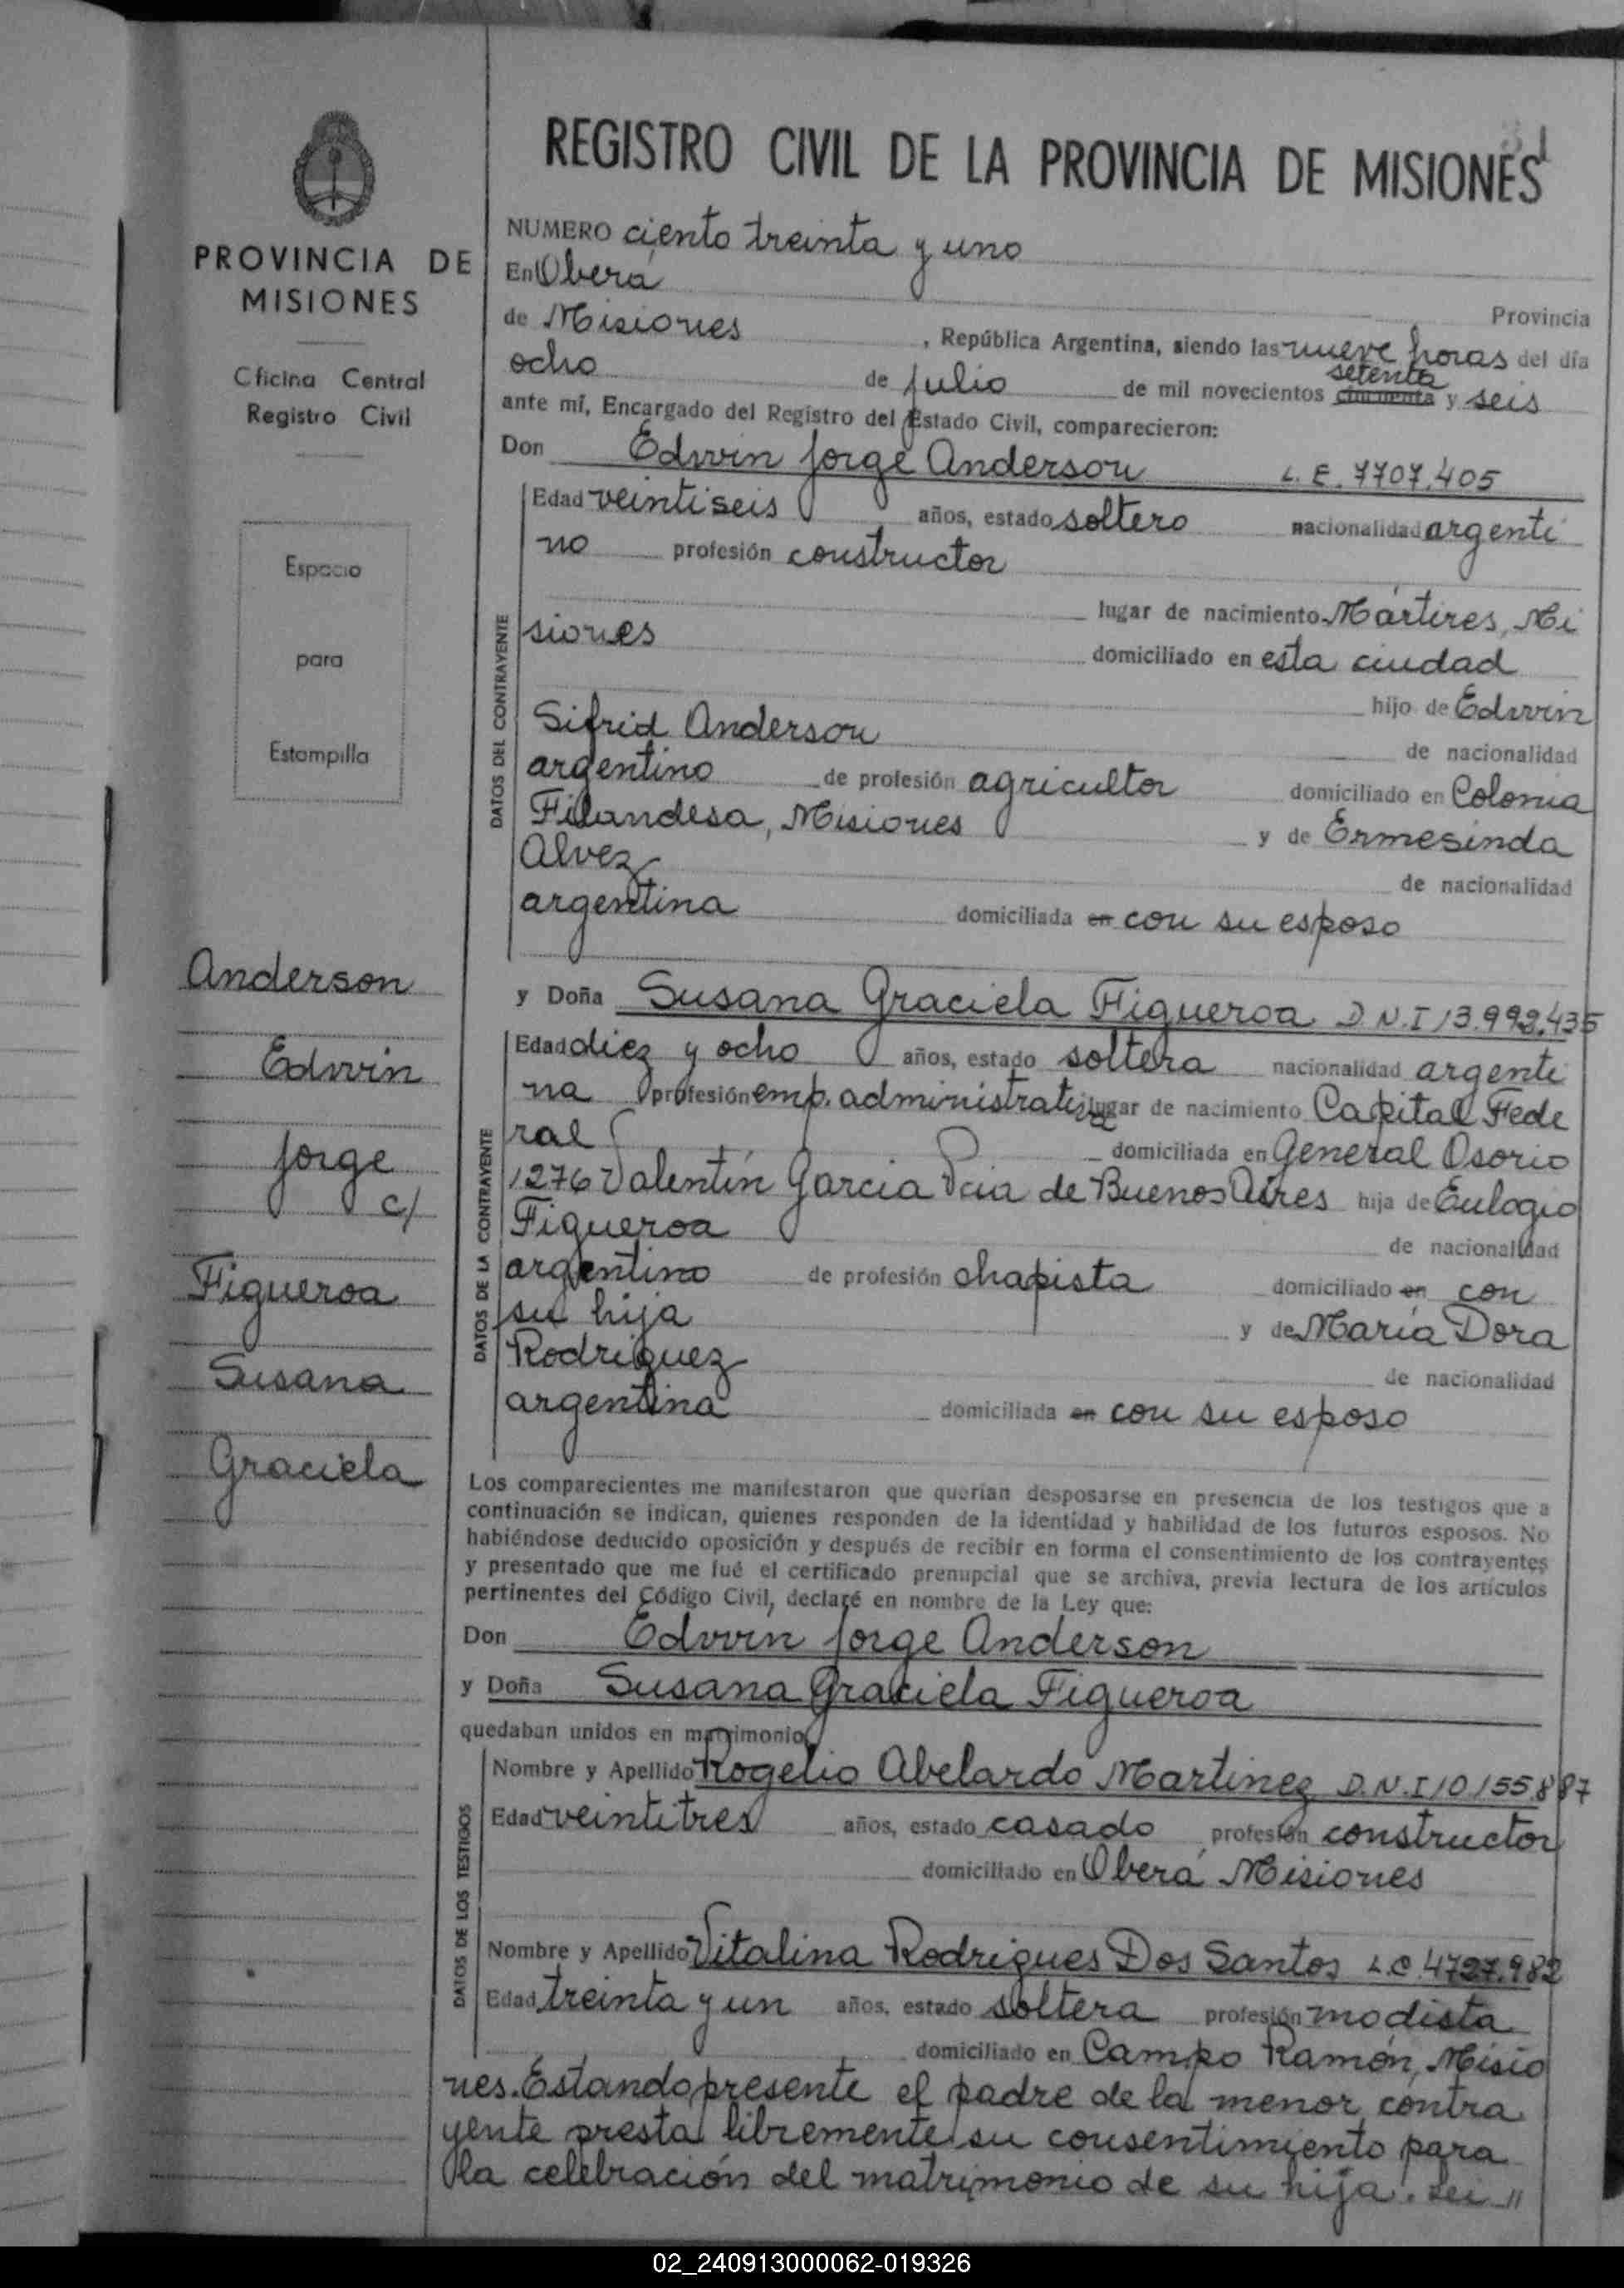 31
REGISTRO CIVIL DE LA PROVINCIA DE MISIONES
PROVINCIA DE
MISIONES
Oficina Central
Registro Civil
Espacio
para
Estampilla
Anderson
Edwin
Jorge
c/
Figueroa
Susana
Graciela
NUMERO ciento treinta y uno
En Oberá
Provincia
de Misiones , República Argentina, siendo las nueve horas del día
ocho de julio de mil novecientos cincuenta setenta y seis
ante mí, Encargado del Registro del Estado Civil, comparecieron:
Don Edwin Jorge Anderson L. E. 7707.405
DATOS DEL CONTRAYENTE
Edad veintiseis años, estado soltero nacionalidad argenti
no profesión constructor
lugar de nacimiento Mártires, Mi
siones domiciliado en esta ciudad
hijo de Edwin
Sifrid Anderson de nacionalidad
argentino de profesión agricultor domiciliado en Colonia
Filandesa, Misiones y de Ermesinda
Alvez de nacionalidad
argentina domiciliada en con su esposo
y Doña Susana Graciela Figueroa D.N.I 13.992.435
DATOS DE LA CONTRAYENTE
Edad diez y ocho años, estado soltera nacionalidad argenti
na profesión emp. administrativa lugar de nacimiento Capital Fede
ral domiciliada en General Osorio
1276 Valentín Garcia Pcia de Buenos Aires hija de Eulogio
Figueroa de nacionalidad
argentino de profesión chapista domiciliado en con
su hija y de María Dora
Rodriguez de nacionalidad
argentina domiciliada en con su esposo
Los comparecientes me manifestaron que querían desposarse en presencia de los testigos que a
continuación se indican, quienes responden de la identidad y habilidad de los futuros esposos. No
habiéndose deducido oposición y después de recibir en forma el consentimiento de los contrayentes
y presentado que me fué el certificado prenupcial que se archiva, previa lectura de los artículos
pertinentes del Código Civil, declaré en nombre de la Ley que:
Don Edwin Jorge Anderson
y Doña Susana Graciela Figueroa
quedaban unidos en matrimonio
DATOS DE LOS TESTIGOS
Nombre y Apellido Rogelio Abelardo Martinez D.N.I 10.155.887
Edad veintitres años, estado casado profesión constructor
domiciliado en Oberá Misiones
Nombre y Apellido Vitalina Rodrigues Dos Santos L.C. 4727.982
Edad treinta y un años, estado soltera profesión modista
domiciliado en Campo Ramón, Misio
nes. Estando presente el padre de la menor contra
yente presta libremente su consentimiento para
la celebración del matrimonio de su hija. Lei //
02_240913000062-019326